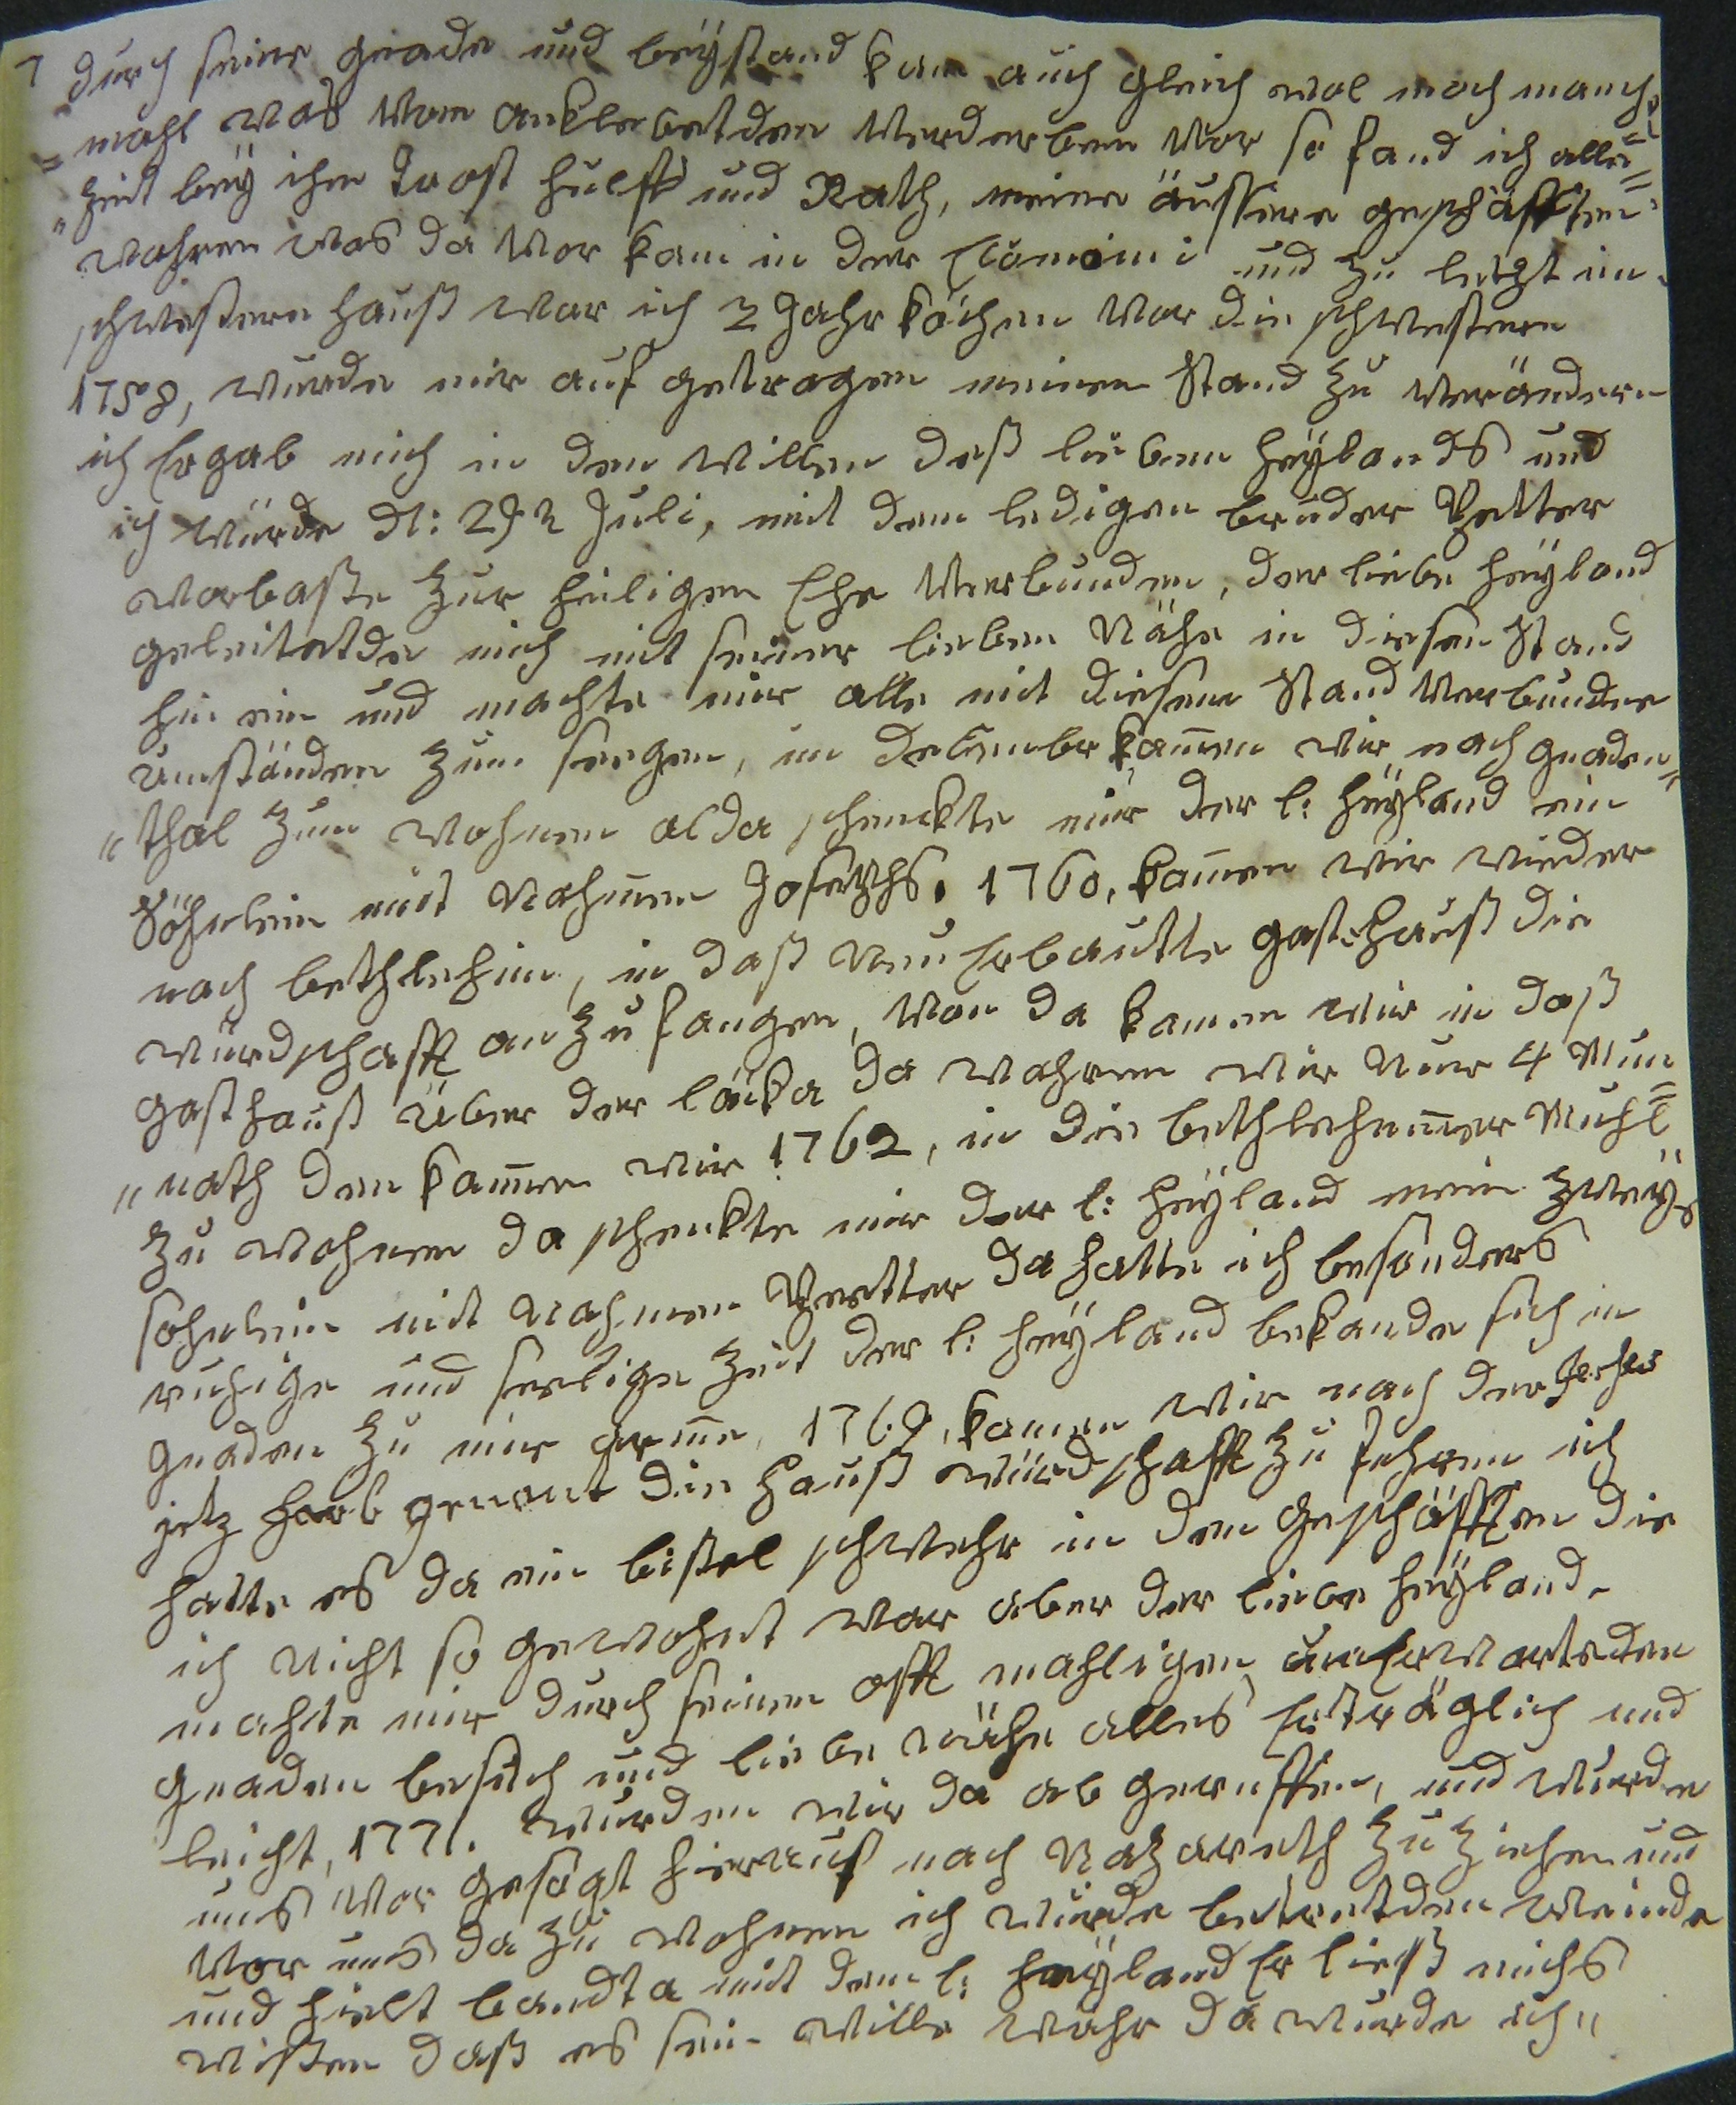 durch seine gnade und beystand kam auch gleich wol noch manch„
„mahl was vom anklebetden verderben vor so fand ich alle„
„zeit bey ihm Trost hülff und Rath, meine äussere geschäfften
wahren was da vor kam in der Economi und zu letzt im
schwestern hauß war ich 2 Jahr köchen vor die schwestern
1758, wurde mir auf getragen meinen Stand zu verändern
ich Ergab mich in den willen deß lieben heylands und
ich würde d: 29 Juli, mit dem ledigen bruder Petter
Worbaße zur heiligen Ehe verbunden, der liebe heyland
geleitetde mich mit seiner lieben Nähe in diesen Stand
hin ein und machte mir alle mit diesem Stand verbunde
umständen zum seegen, im December kamen wir nach gnaden„
„thal zum wohnen alda schenckte mir der l: heyland ein
Söhnlein mit Nahmen Josephs. 1760, kamen wir wieder
nach bethlehem, in daß Neu Erbautte gastehauß die
würdschafft an zu fangen, von da kamen wir in daß
gasthauß über der läcka da wahren wir Nur 4 Mun„
„nath den kamen wir 1762, in die bethlehemmer Muhl
zu wohnen da schenkte mir der l: heyland mein zwey„
sohnlein mit Nahmen Petter da hatte ich besonders
ruhige und seelige zeit der l: heyland bekande sich in
gnaden zu mir arme, 1769, kamen wir nach der
jetz genant die hauß würdschafft zu fehren ich
hatte es da ein bissel schwehr in den geschäfften die
ich nicht so gewohnt war aber der liebe heyland
machte mir durch seinen offt mahligen unErwarteden
gnaden besuch und liebe nähe alles Erträglich und
leicht, 1771. wurden wir da ab geruffen, und wurde
uns vor gesagt hierauf nach Nazareth zu ziehen und
vor uns da zu wohnen ich würde betretden weinde
und hielt bandta mit dem l: heyland Er ließ michs
wissen daß es sein wille wahr da wurde ich„